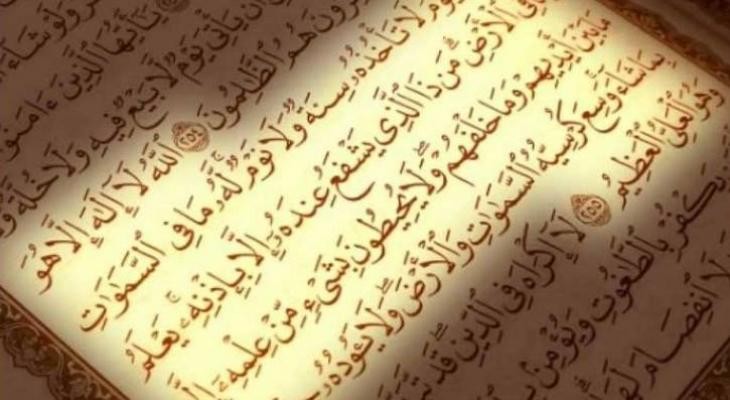 وَلَوْ شَآءَ
يَٰٓأَيُّهَا ٱلَّذِينَ ءَامَنُوٓا۟
يَأْتِىَ يَوْمٌ لَّا بَيْعٌ فِيهِ وَلَا خُلَّةٌ
هُمُ ٱلظَّٰلِمُونَ ٢٥٤ ٱللَّهُ لَآ إِلَٰهَ إِلَّا هُوَ
لَا تَأْخُذُهُۥ سِنَةٌ وَلَا نَوْمٌ لَّهُۥ مَا فِى ٱلسَّمَٰوَٰتِ
فِى ٱلْأَرْضِ مَن ذَا ٱلَّذِى يَشْفَعُ عِندَهُۥٓ إِلَّا بِإِذْنِهِۦ يَعْلَمُ
مَا بَيْنَ أَيْدِيهِمْ وَمَا خَلْفَهُمْ وَلَا يُحِيطُونَ بِشَىْءٍ مِّنْ عِلْمِهِۦٓ
بِمَا شَآءَ وَسِعَ كُرْسِيُّهُ ٱلسَّمَٰوَٰتِ وَٱلْأَرْضَ وَلَا يَـُٔودُهُۥ
وَهُوَ ٱلْعَلِىُّ ٱلْعَظِيمُ ٢٥٥ لَآ إِكْرَاهَ فِى ٱلدِّينِ قَد
يَكْفُرْ بِٱلطَّٰغُوتِ وَيُؤْمِنۢ
لَا ٱنفِصَامَ لَهَا